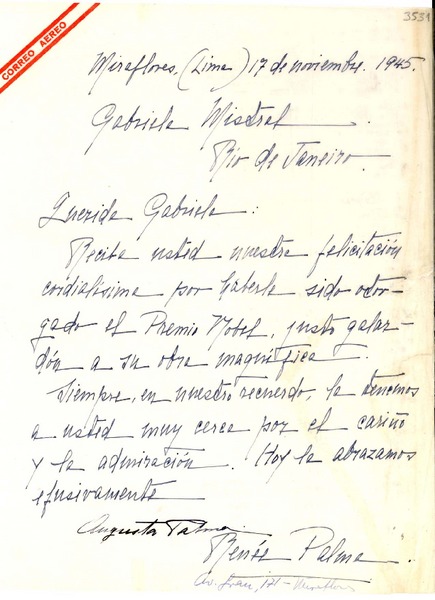 CORREO AEREO
3531
Miraflores, (Lima) 17 de noviembre. 1945.
Gabriela Mistral
Río de Janeiro.
Querida Gabriela:
Reciba usted nuestra felicitación
cordialísima por haberle sido otor-
gado el Premio Nobel, justo galar-
dón a su obra magnífica.
Siempre, en nuestro recuerdo, la tenemos
a usted muy cerca por el cariño
y la admiración. Hoy la abrazamos
efusivamente
Augusta Palma.
Renée Palma.
171 - Miraflores